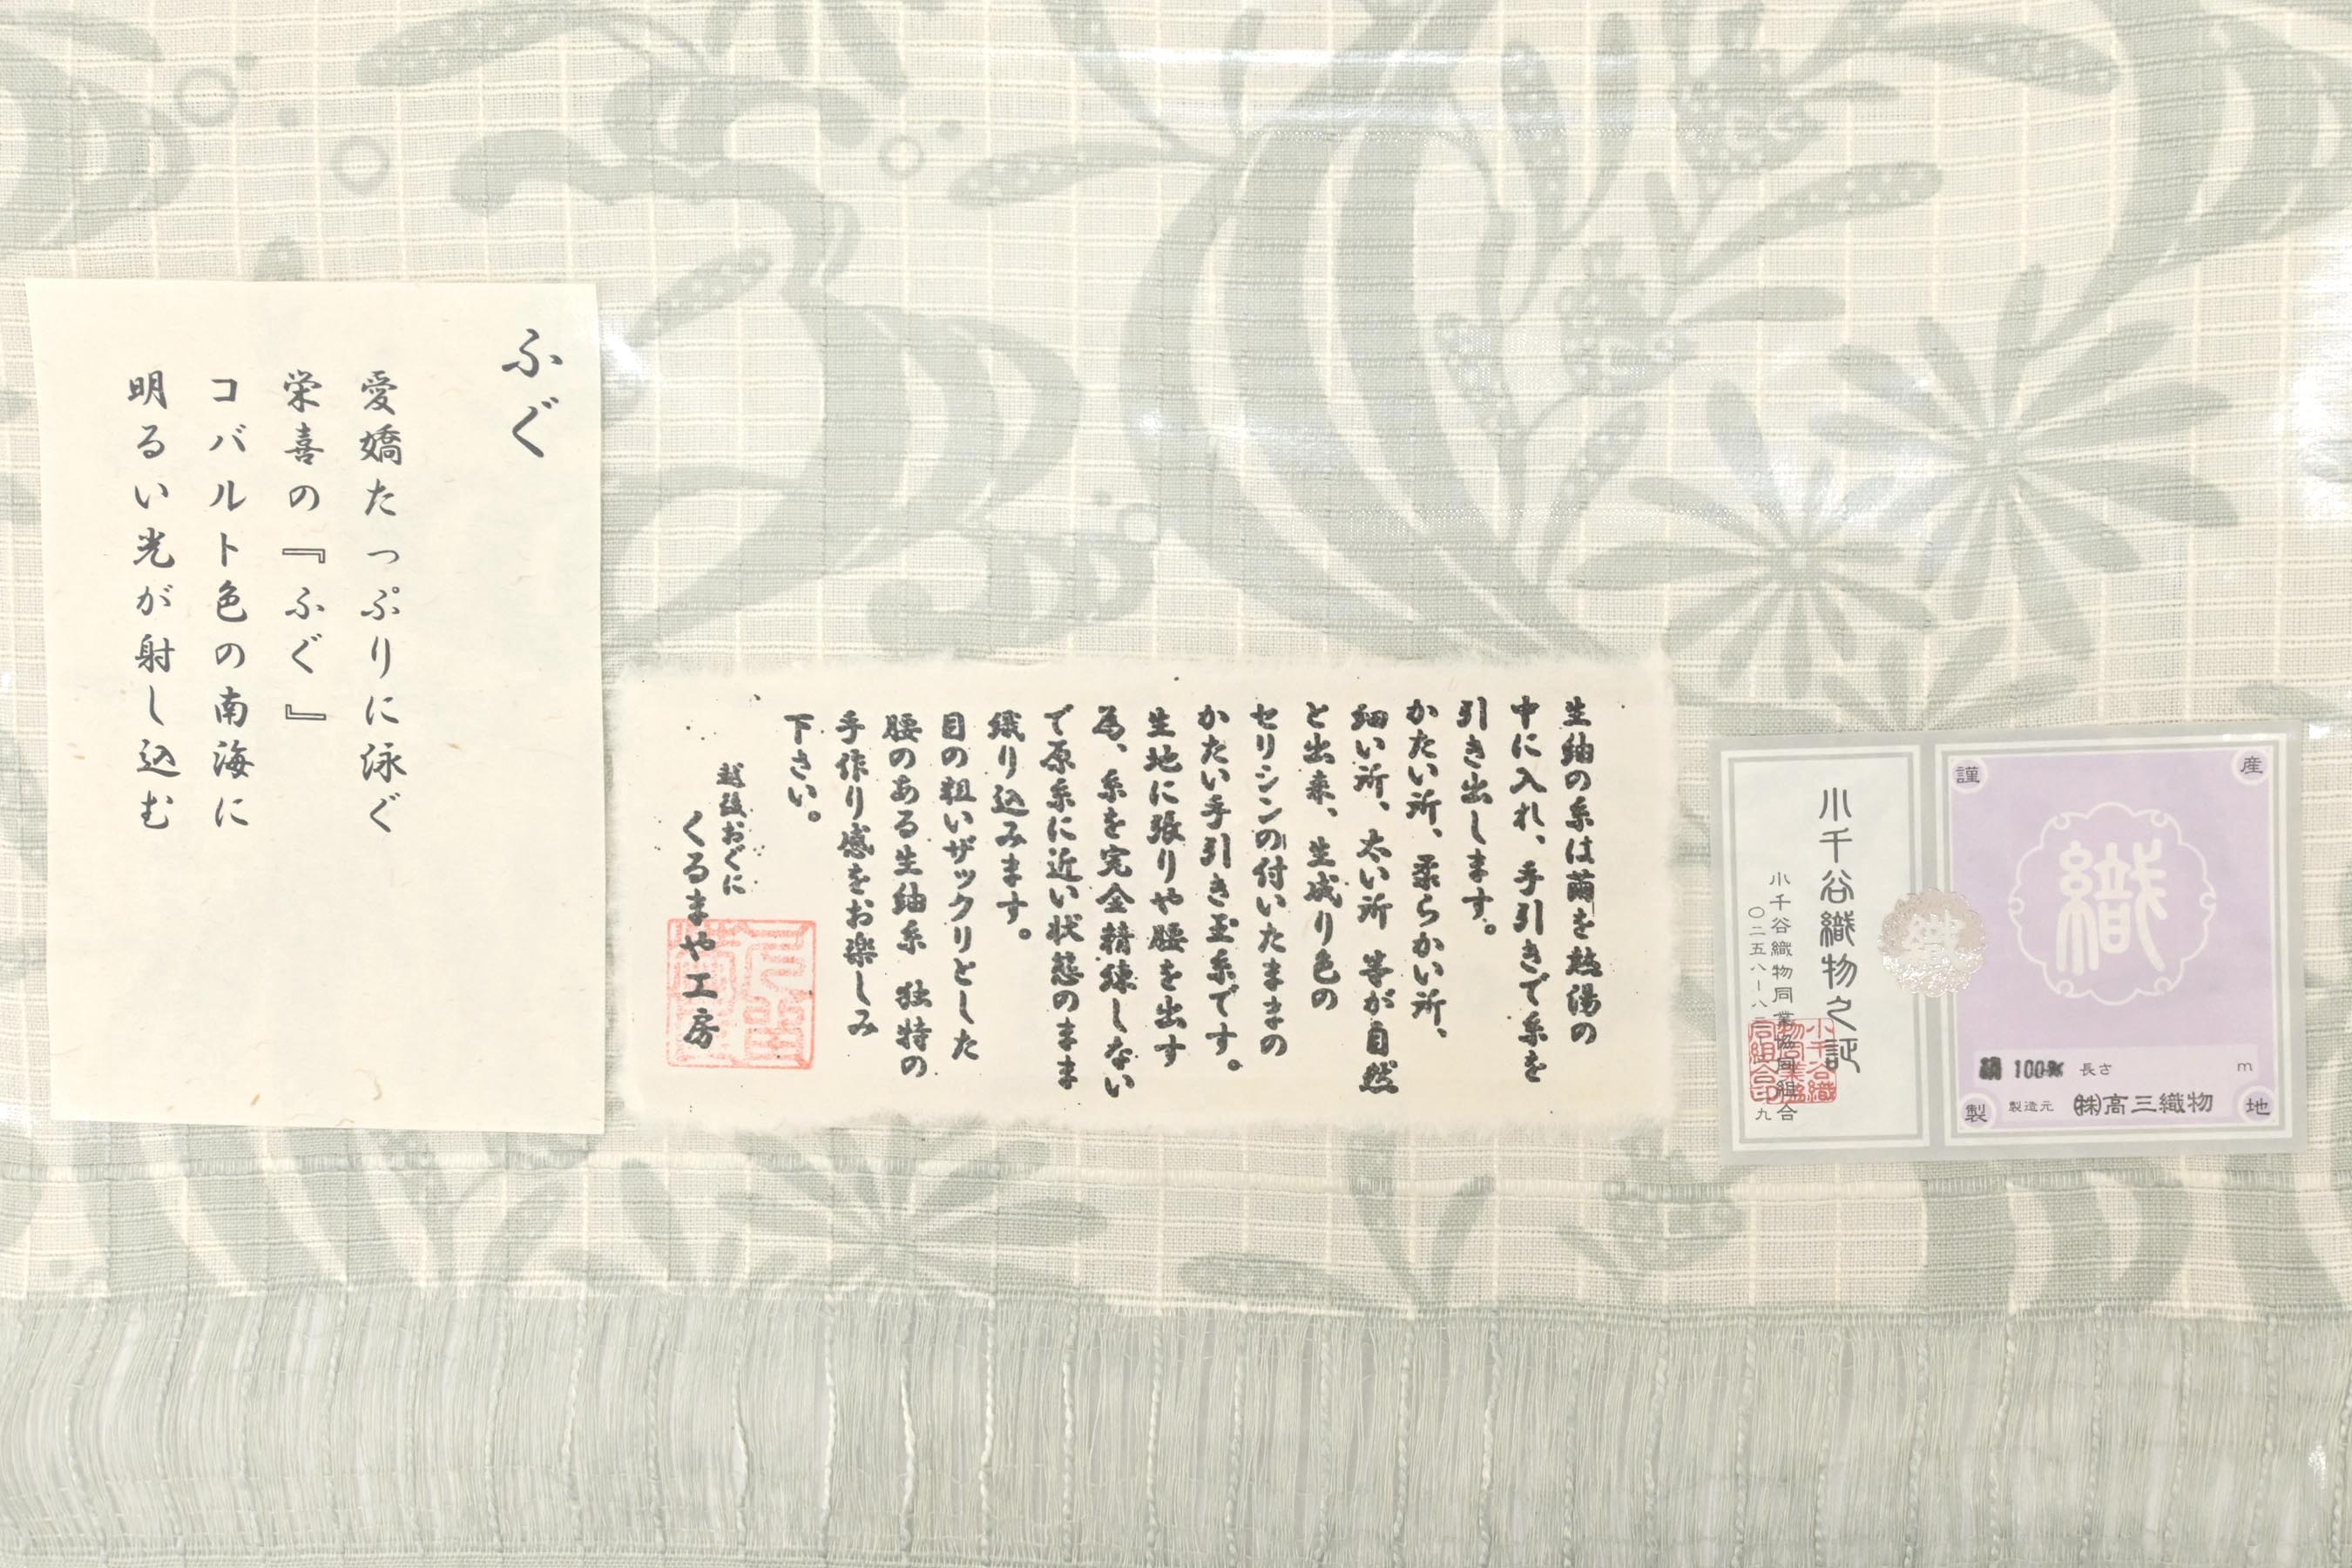 ふぐ
愛嬌たっぷりに泳ぐ
栄喜の『ふぐ』
コバルト色の南海に
明るい光が射し込む
生紬の糸は繭を熱湯の
中に入れ、手引きで糸を
引き出します。
かたい所、柔らかい所、
細い所、太い所 等が自然
と出来、生成り色の
セリシンの付いたままの
かたい手引き玉糸です。
生地に張りや腰を出す
為、糸を完全精練しない
で原糸に近い状態のまま
織り込みます。
目の粗いザックリとした
腰のある生紬糸 独特の
手作り感をお楽しみ
下さい。
越後おぐに
くるまや工房
小千谷織物之証
小千谷織物同業協同組合
小千谷織物同業協同組合印
謹
製
産
地
織
織
絹 100% 長さ m
製造元 ㈱高三織物